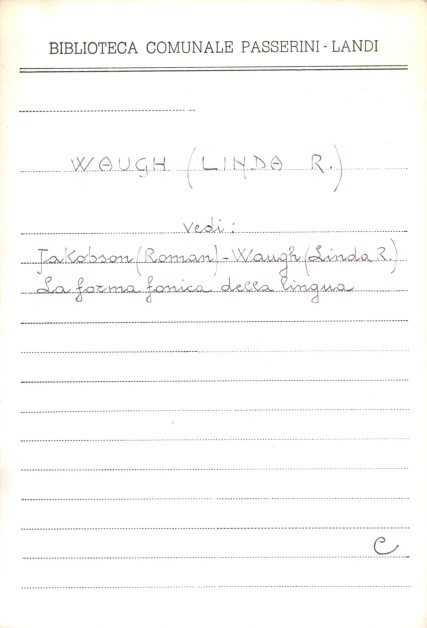 BIBLIOTECA COMUNALE PASSERINI - LANDI
WAUGH (LINDA R.)
vedi:
Jakobson (Roman) - Waugh (Linda R.)
La forma fonica della lingua
C